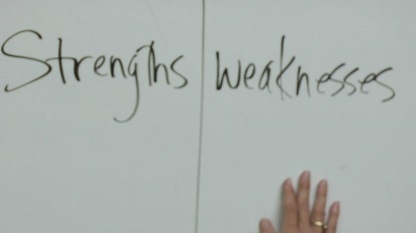 Strengths weaknesses